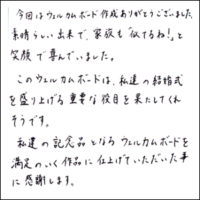 今回はウェルカムボード作成ありがとうございました。
素晴らしい出来で、家族も「似てるね!」と
笑顔で喜んでいました。
このウェルカムボードは、私達の結婚式
を盛り上げる重要な役目を果たしてくれ
そうです。
私達の記念品となるウェルカムボードを
満足のいく作品に仕上げていただいた事
に感謝します。